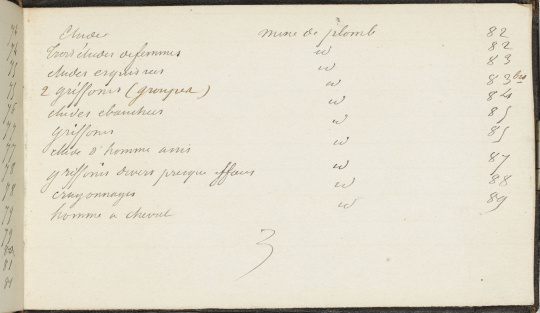 Etudes mine de plomb 82
trois études de femmes id 82
études esquissées id 83
2 griffonis (groupes) id 83 bis
études ébauchées id 84
griffonis id 85
étude d'homme assis id 85
griffonis divers presque effacés id 87
crayonnages id 88
homme a cheval id 89
3